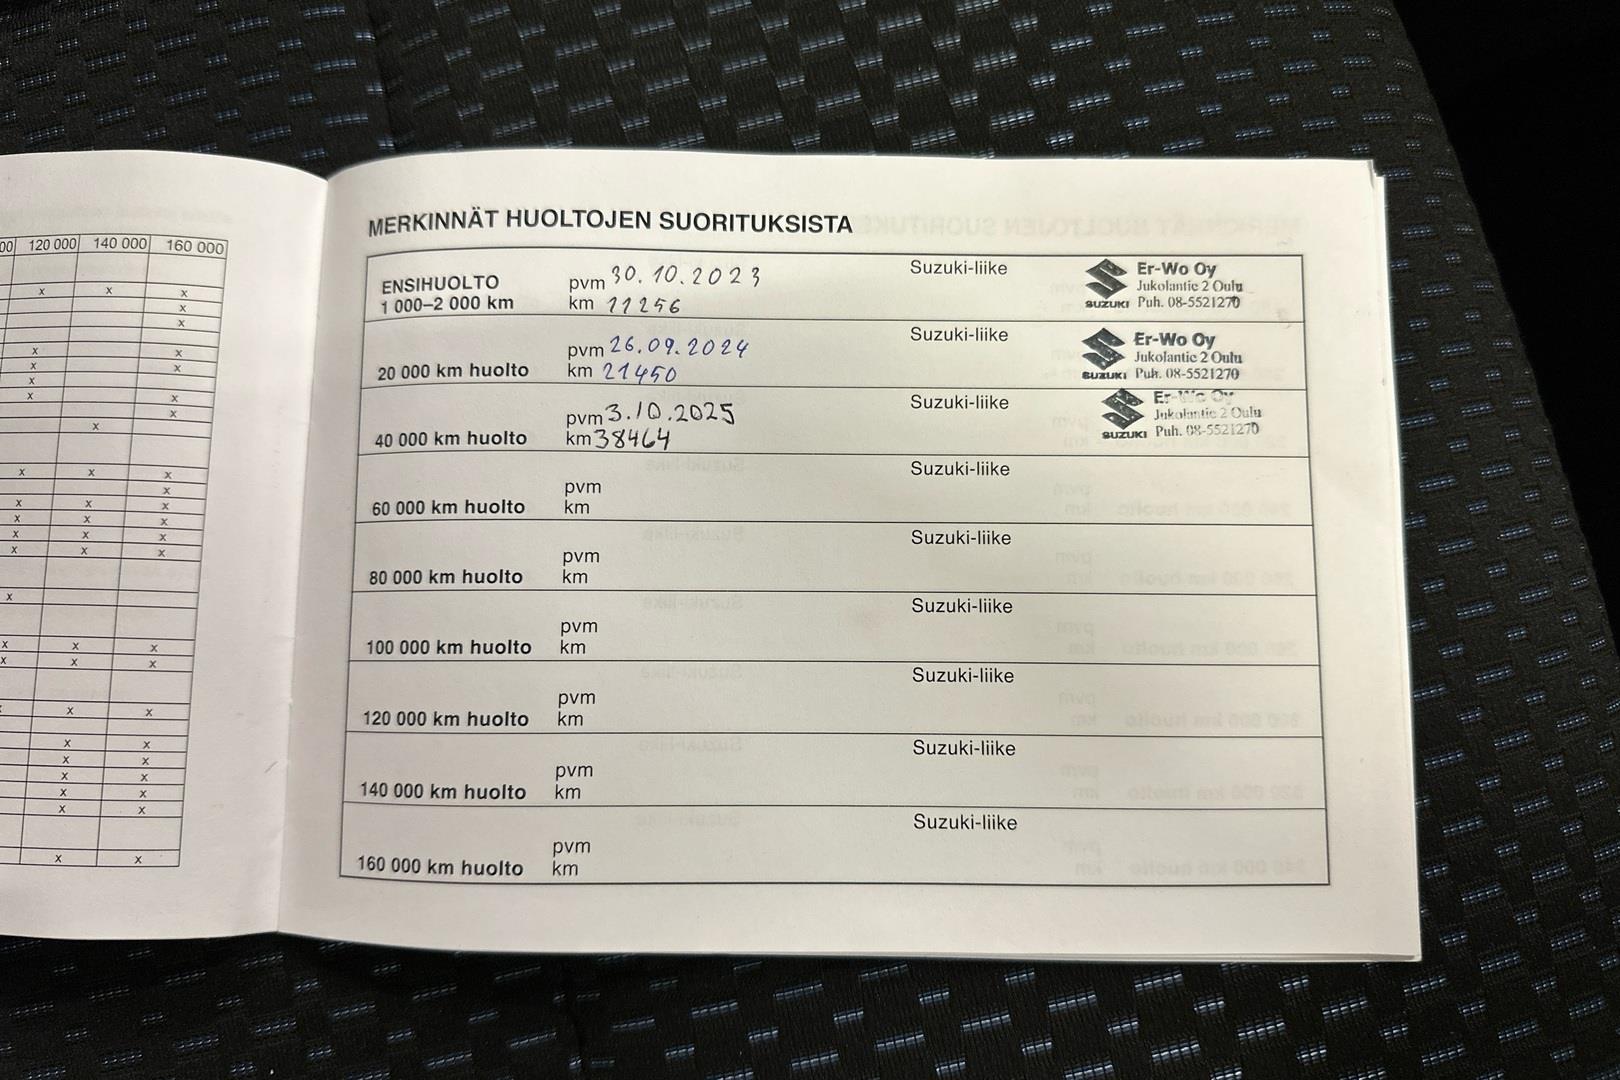 120 000 140 000 160 000
MERKINNÄT HUOLTOJEN SUORITUKSISTA
ENSIHUOLTO
1 000–2 000 km
pvm 30.10.2023
km 11256
Suzuki-liike
SUZUKI
Er-Wo Oy
Jukolantie 2 Oulu
Puh. 08-5521270
20 000 km huolto
pvm 26.09.2024
km 21450
Suzuki-liike
SUZUKI
Er-Wo Oy
Jukolantie 2 Oulu
Puh. 08-5521270
40 000 km huolto
pvm 3.10.2025
km 38464
Suzuki-liike
SUZUKI
Er-Wo Oy
Jukolantie 2 Oulu
Puh. 08-5521270
60 000 km huolto
pvm
km
Suzuki-liike
80 000 km huolto
pvm
km
Suzuki-liike
100 000 km huolto
pvm
km
Suzuki-liike
120 000 km huolto
pvm
km
Suzuki-liike
140 000 km huolto
pvm
km
Suzuki-liike
160 000 km huolto
pvm
km
Suzuki-liike